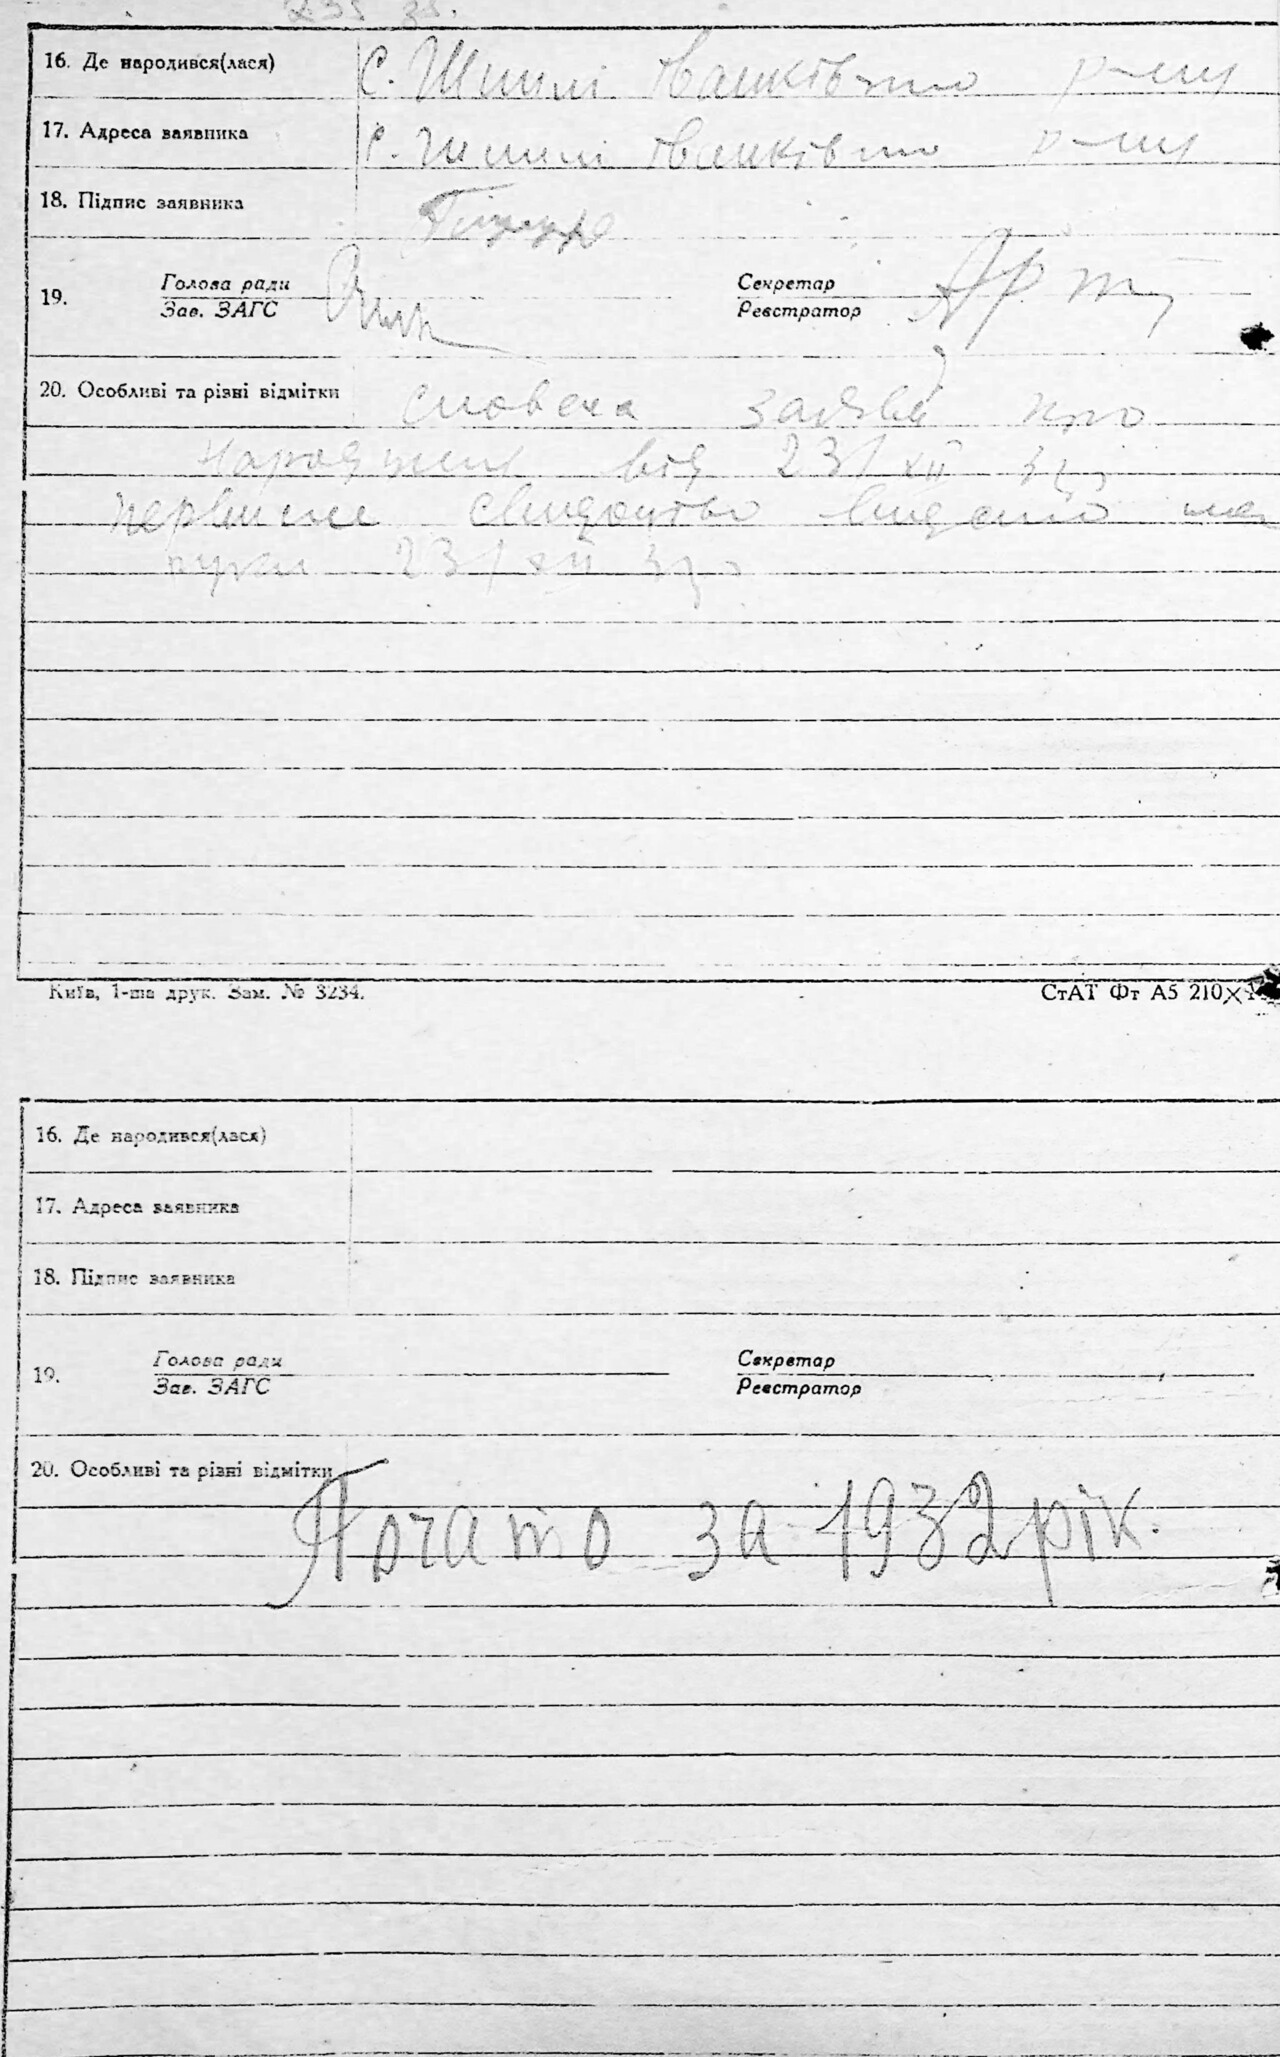 16. Де народився(лася) с. Шпилі Іванківського р-ну
17. Адреса заявника с. Шпилі Іванківського р-ну
18. Підпис заявника
19. Голова ради Секретар
Зав. ЗАГС Реєстратор
20. Особливі та різні відмітки словесна заява про
народження від 23/XII
первинне свідоцтво видано на
руки 23/XII
Київ, 1-ша друк. Зам. № 3234. СтАТ Фт А5 210×
16. Де народився(лася)
17. Адреса заявника
18. Підпис заявника
19. Голова ради Секретар
Зав. ЗАГС Реєстратор
20. Особливі та різні відмітки
Почато за 1932 рік.